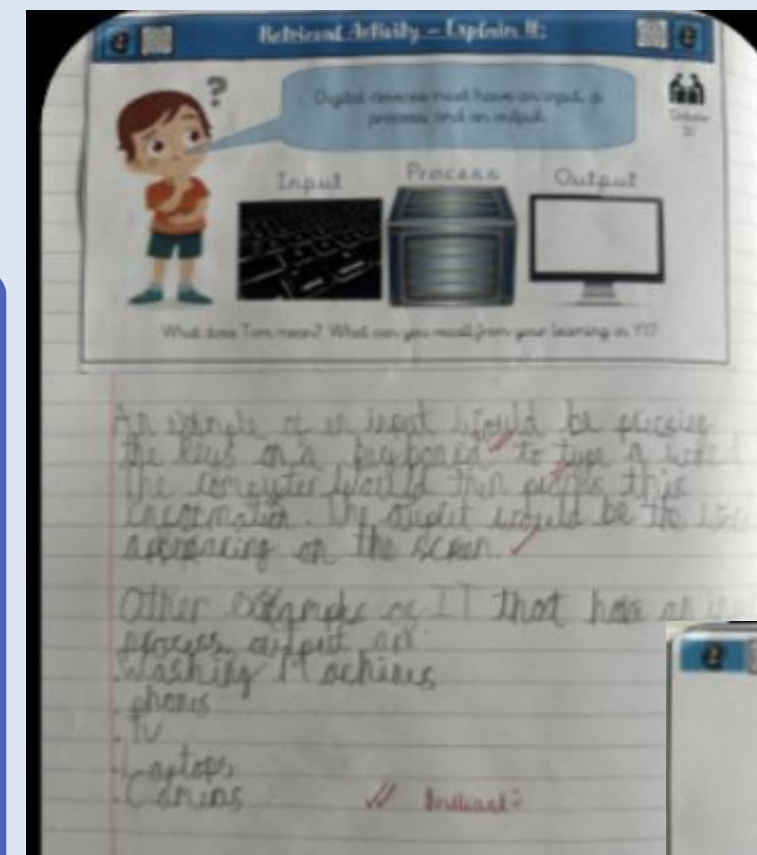 Retrieval Activity – Explain It:
?
Digital devices must have an input, a
process and an output.
Input
Process
Output
What does Tom mean? What can you recall from your learning in Y1?
An example of an input would be pressing
the keys on a keyboard to type a word
the computer would then process this
information. The output would be the
appearing on the screen.
Other example of IT that have an
process, output are
. Washing Machines
. phones
. TV
. Laptops
Brilliant